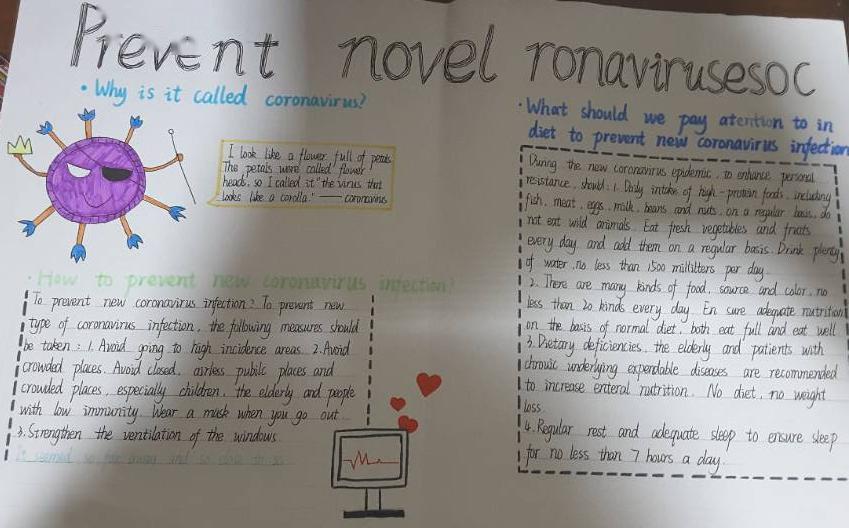 Prevent novel ronavirusesoc
• Why is it called coronavirus?
I look like a flower full of petals.
The petals were called flower
heads, so I called it "the virus that
looks like a corolla." —— coronavirus
• How to prevent new coronavirus infection?
To prevent new coronavirus infection? To prevent new
type of coronavirus infection, the following measures should
be taken: 1. Avoid going to high incidence areas. 2. Avoid
crowded places. Avoid closed, airless public places and
crowded places, especially children, the elderly and people
with low immunity. Wear a mask when you go out.
3. Strengthen the ventilation of the windows.
It seemed so far away and so close to us
• What should we pay atention to in
diet to prevent new coronavirus infection
During the new coronavirus epidemic, to enhance personal
resistance, should: 1. Daily intake of high-protein foods, including
fish, meat, eggs, milk, beans and nuts, on a regular basis, do
not eat wild animals. Eat fresh vegetables and fruits
every day and add them on a regular basis. Drink plenty
of water, no less than 1500 milliliters per day.
2. There are many kinds of food, source and color, no
less than 20 kinds every day. En sure adequate nutrition
on the basis of normal diet, both eat full and eat well
3. Dietary deficiencies, the elderly and patients with
chronic underlying expendable diseases are recommended
to increase enteral nutrition. No diet, no weight
loss.
4. Regular rest and adequate sleep to ensure sleep
for no less than 7 hours a day.